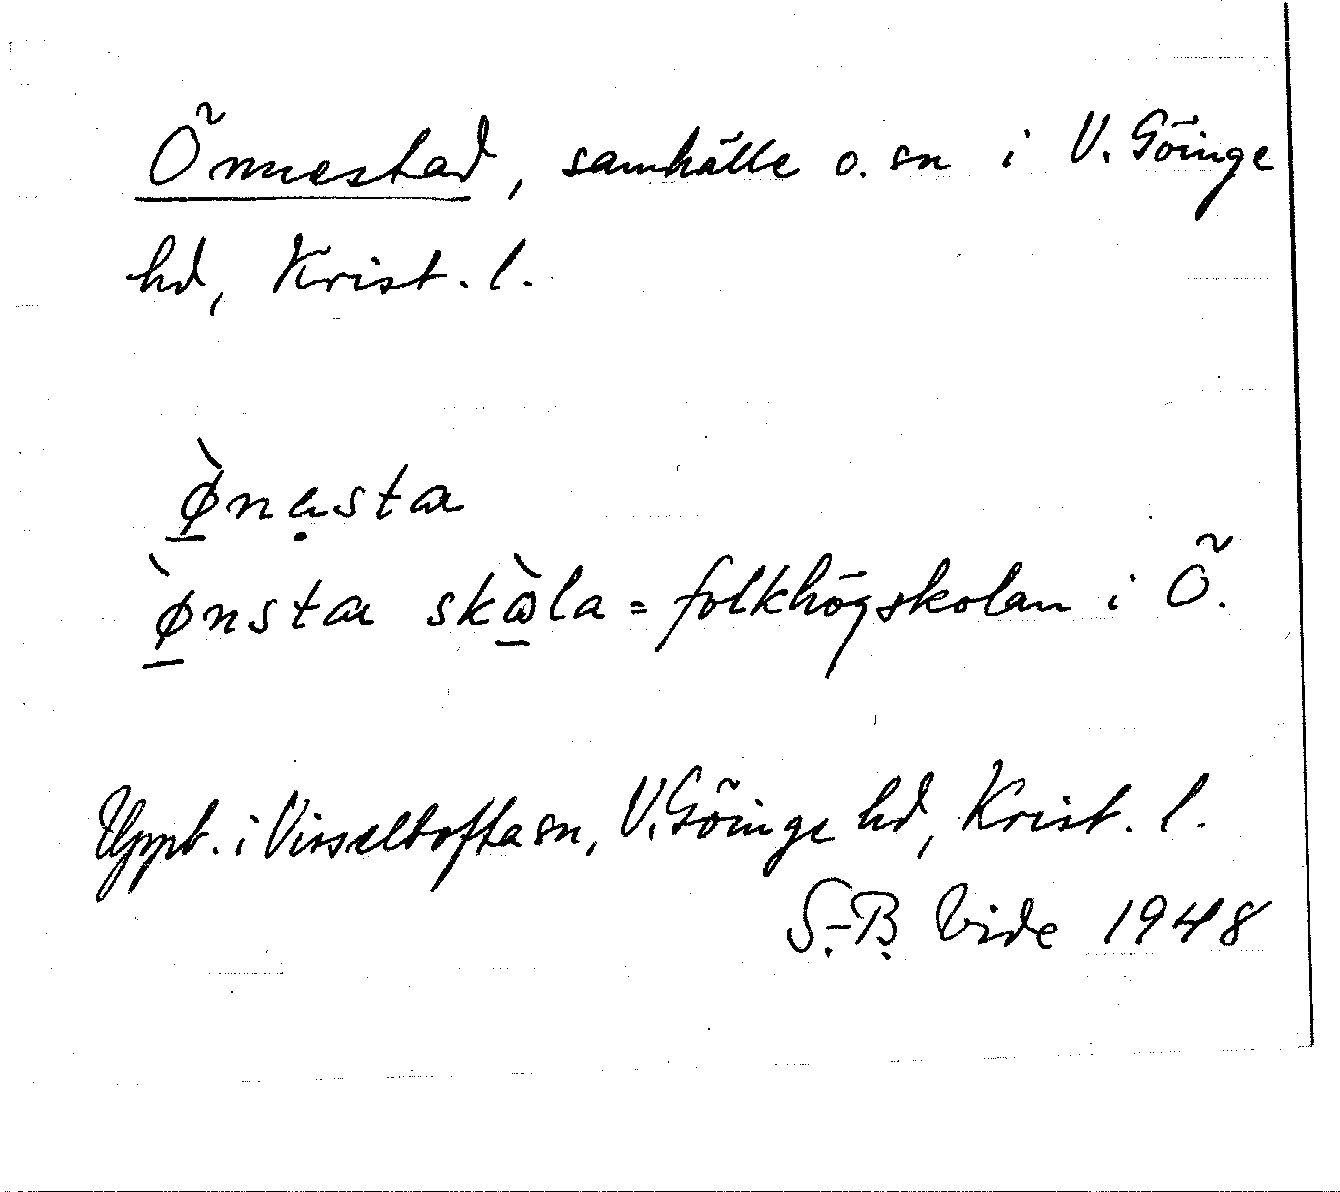 Önnestad, samhälle o. sn i V. Göinge
hd, Krist. l.
ø̱̀nạsta
ø̱̀nsta skà̱la = folkhögskolan i Ö.
Uppt. i Visseltofta sn, V. Göinge hd, Krist. l.
S.-B. Vide 1948